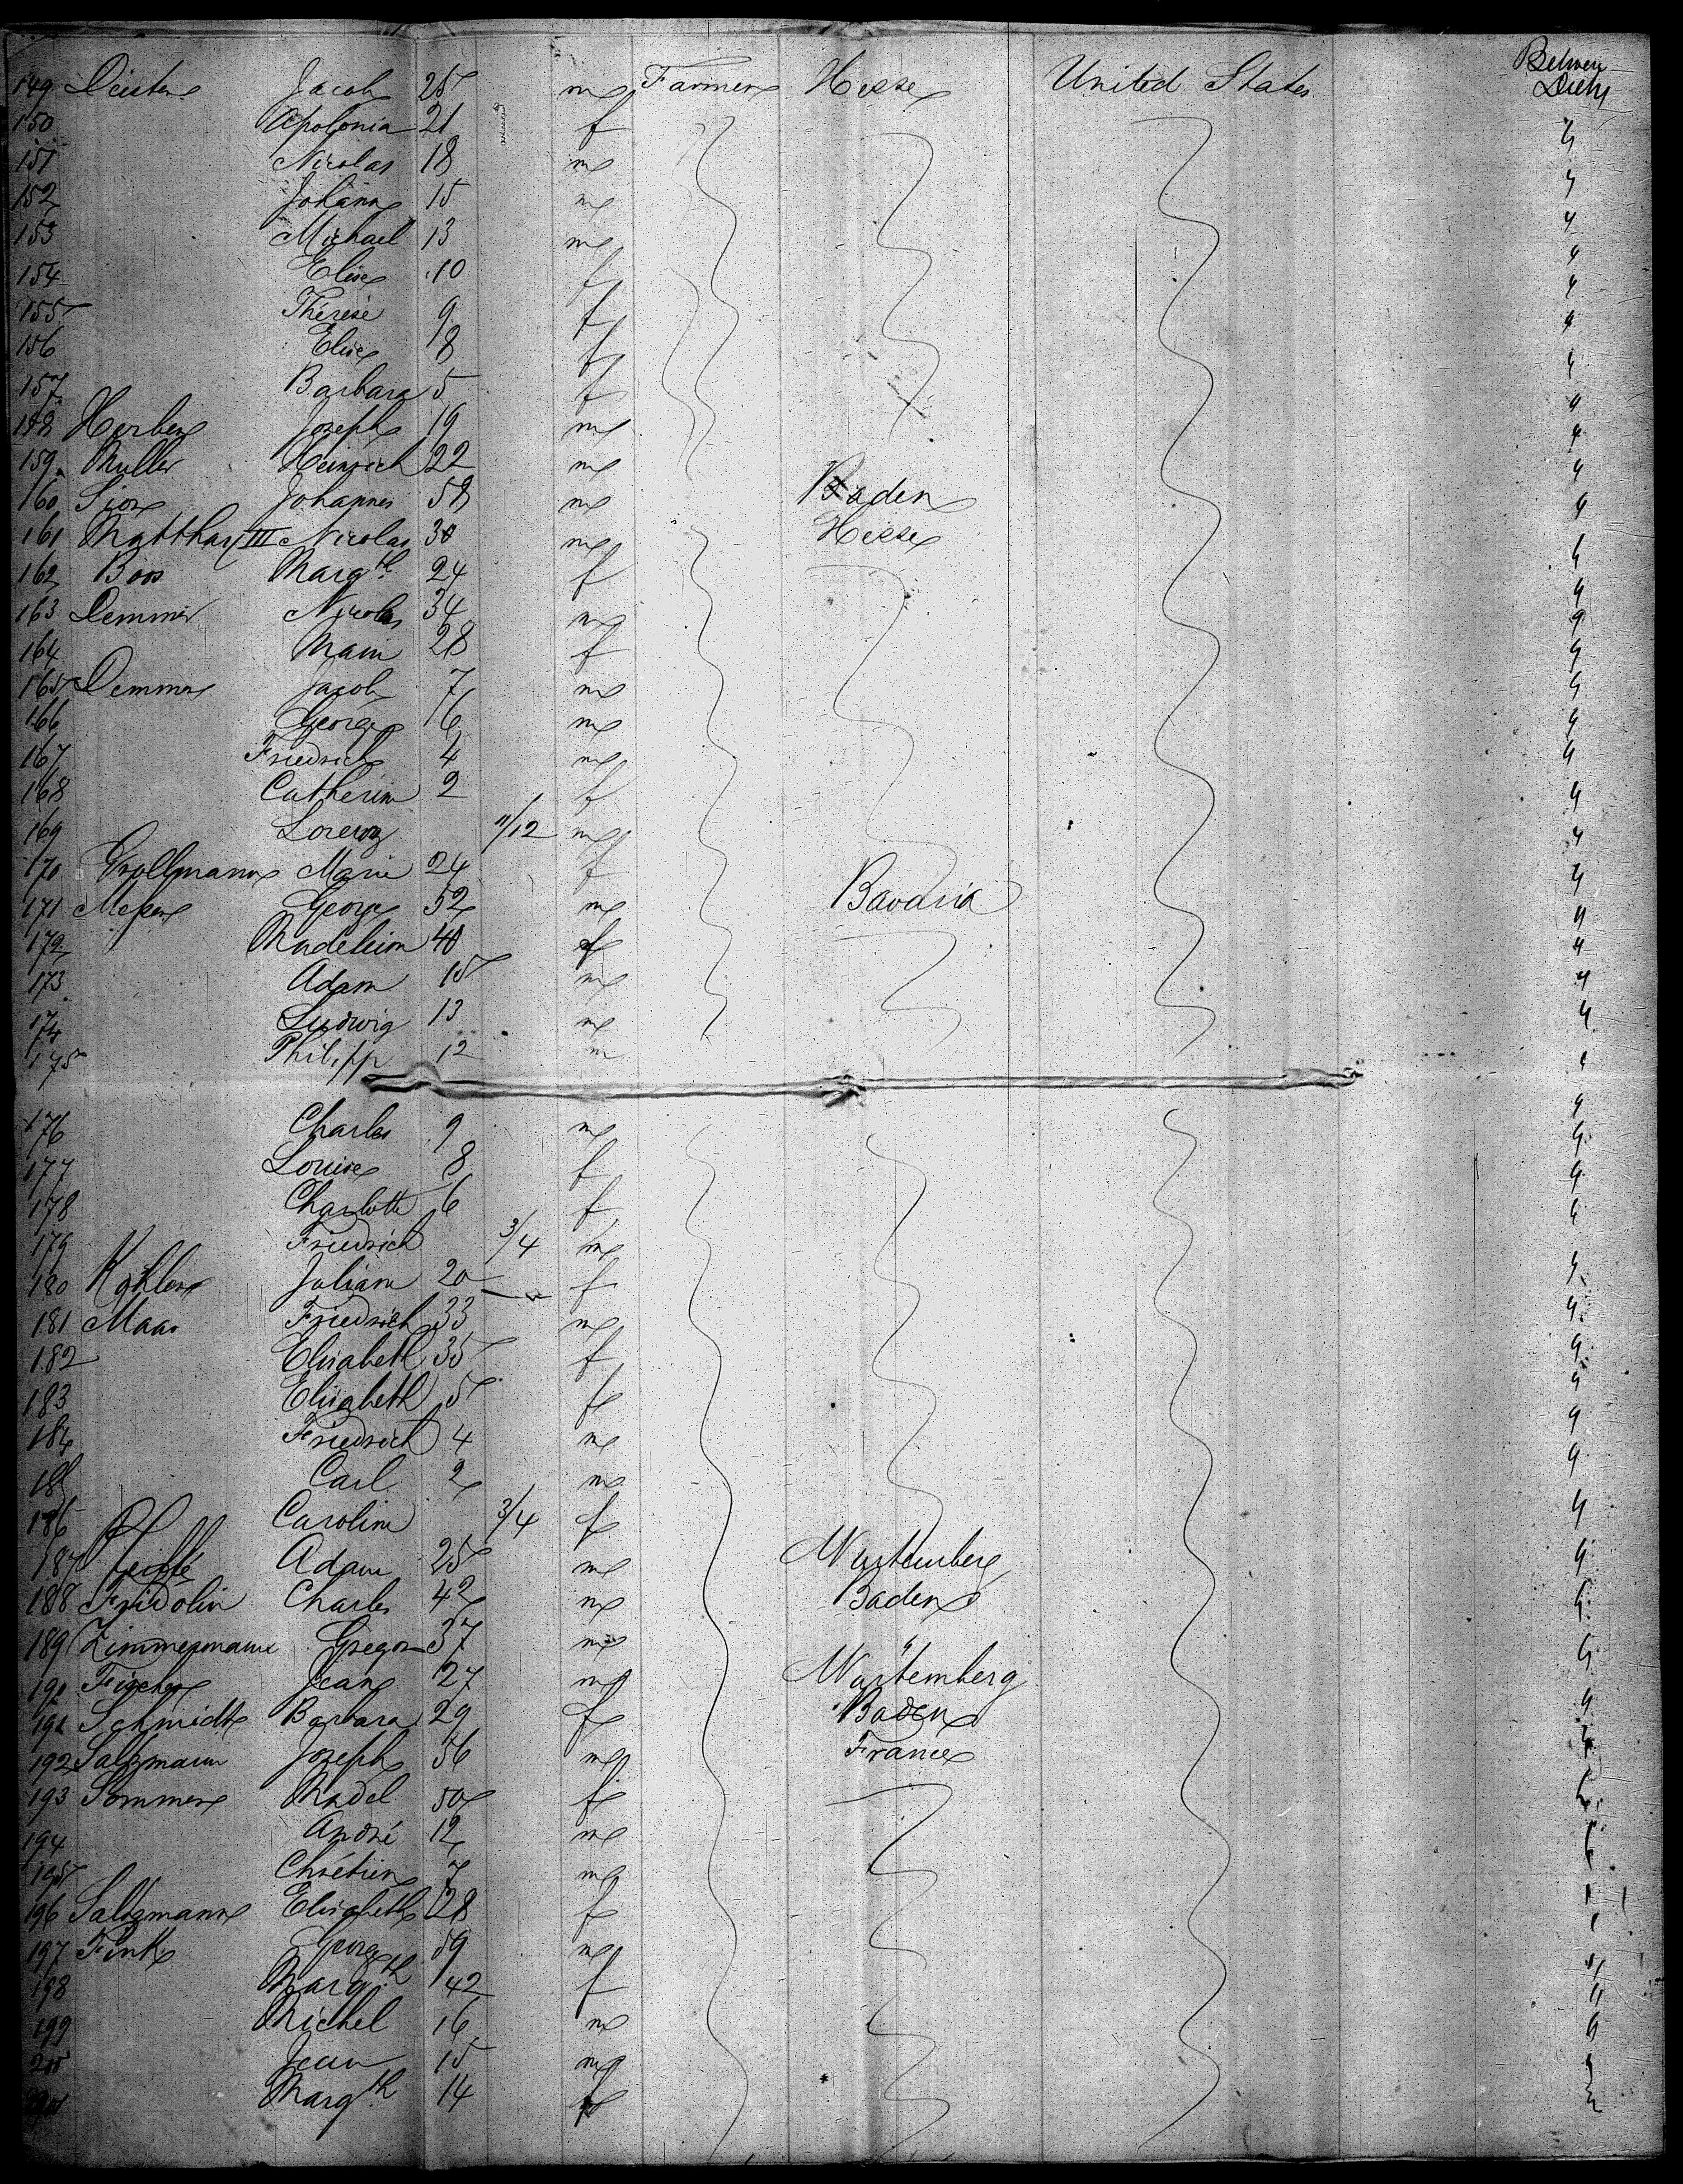 149 Deister Jacob 25 m Farmer Hesse United States Between Decks
150 Apolonia 21 f "
151 Nicolas 18 m "
152 Johann 15 m "
153 Michael 13 m "
154 Elise 10 f "
155 Thérèse 9 f "
156 Elise 8 f "
157 Barbara 5 f "
158 Herber Joseph 19 m "
159 Muller Heinrich 22 m "
160 Johannes 58 m Baden "
161 III Nicolas 30 m Hesse "
162 Boos Margth 24 f "
163 Demmer Nicolas 34 m "
164 28 f "
165 Demmer Jacob 7 m "
166 George 6 m "
167 Friedrich 4 m "
168 Catherin 2 f "
169 Lorenz 11/12 m "
170 Marie 24 f "
171 George 52 m Bavaria "
172 Madeleine 40 f "
173 Adam 15 m "
174 Ludwig 13 m "
175 Philipp 12 m "
176 Charles 9 m "
177 Louise 8 f "
178 Charlotte 6 f "
179 Friedrich 3/4 m "
180 Kohler Juliane 20 f "
181 Maas Friedrich 33 m "
182 Elisabeth 35 f "
183 Elisabeth 5 f "
184 Friedrich 4 m "
185 Carl 2 m "
186 Caroline 3/4 f "
187 Adam 25 m Wurtemberg "
188 Fridolin Charles 42 m Baden "
189 Zimmermann Gregor 37 m " "
190 Fischer Jean 27 m Wurtemberg "
191 Schmidt Barbara 29 f Baden "
192 Saltzmann Joseph 56 m France "
193 Sommer Madel 50 f "
194 André 12 m "
195 Chrétien 7 m "
196 Saltzmann Elisabeth 28 f "
197 Fink George 59 m "
198 Margth 42 f "
199 Michel 16 m "
200 Jean 15 m "
201 Margth 14 f "